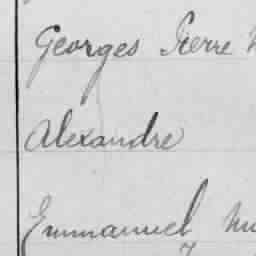 Georges Pierre
Alexandre
Emmanuel